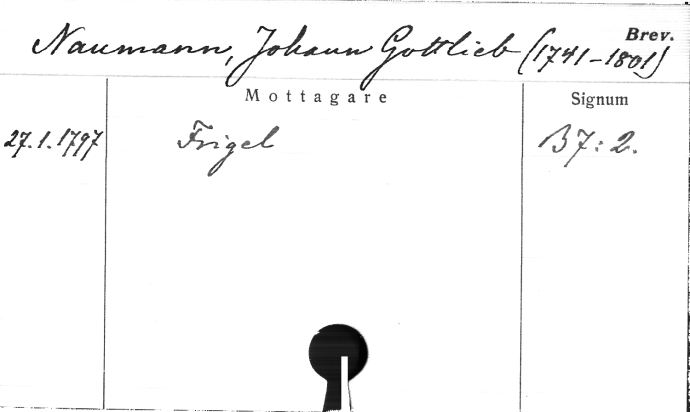 Brev.
Naumann, Johann Gottlieb (1741-1801)
Mottagare Signum
27.1.1797 Frigel B7:2.